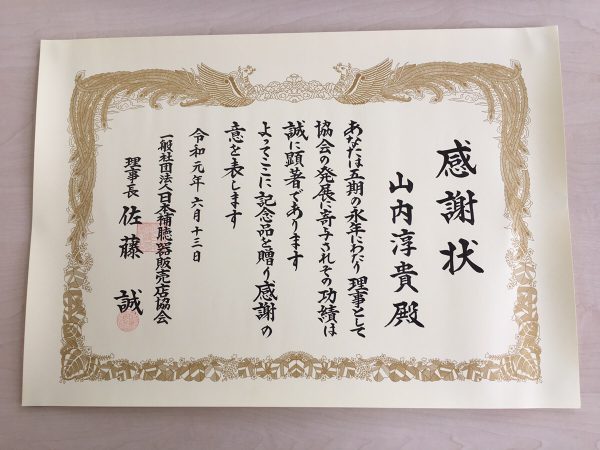 感謝状
山内淳貴 殿
あなたは五期の永年にわたり 理事として
協会の発展に寄与されその功績は
誠に顕著であります
よってここに記念品を贈り感謝の
意を表します
令和元年 六月十三日
一般社団法人日本補聴器販売店協会
理事長 佐藤 誠